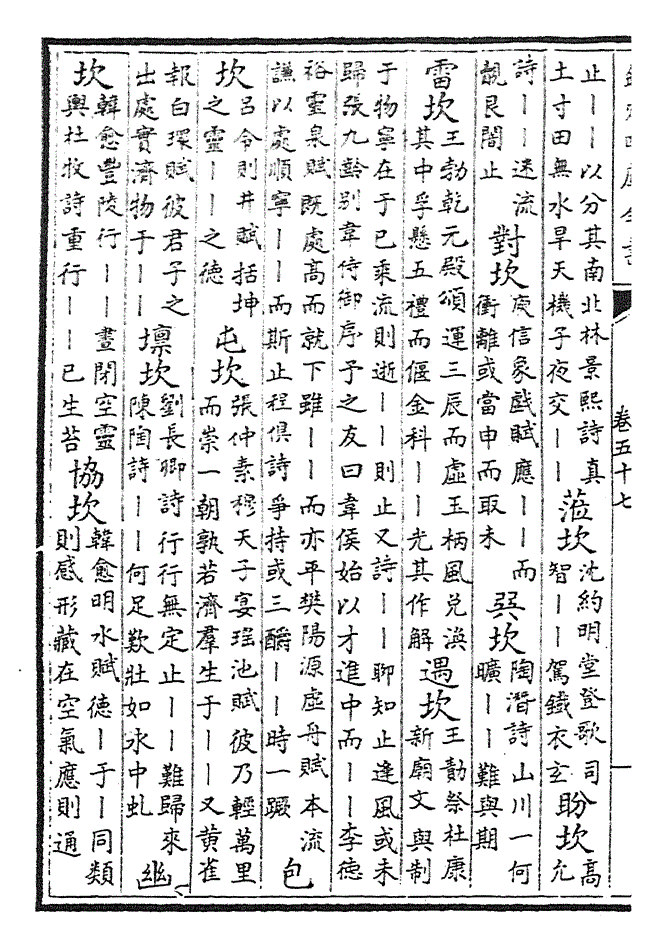 欽定四庫全書
卷五十七
一
止丨丨以分其南北林景熙詩真
土寸田無水旱天機子夜交丨丨
蒞坎
沈約明堂登歌司
智丨丨駕鐵衣玄
盼坎
高
允
詩丨丨迷流
覩艮闇止
對坎
庾信象戲賦應丨丨而
衝離或當申而取未
巽坎
陶潛詩山川一何
曠丨丨難與期
雷坎
王勃乾元殿頌運三辰而虛玉柄風兌渙
其中孚懸五禮而偃金科丨丨光其作解
遇坎
王勣祭杜康
新廟文與制
于物寧在于已乘流則逝丨丨則止又詩丨丨聊知止逢風或未
歸張九齡別韋侍御序予之友曰韋侯始以才進中而丨丨李德
裕靈泉賦既處高而就下雖丨丨而亦平樊陽源虛舟賦本流
謙以處順寧丨丨而斯止程俱詩爭持或三釂丨丨時一蹶
包
坎
呂令則井賦括坤
之靈丨丨之德
屯坎
張仲素穆天子宴瑶池賦彼乃輕萬里
而崇一朝孰若濟羣生于丨丨又黄雀
報白環賦彼君子之
出處實濟物于丨丨
壈坎
劉長卿詩行行無定止丨丨難歸來
陳陶詩丨丨何足歎壯如水中虬
幽
坎
韓愈豐陵行丨丨晝閉空靈
輿杜牧詩重行丨丨已生苔
協坎
韓愈明水賦德丨于丨同類
則感形藏在空氣應則通